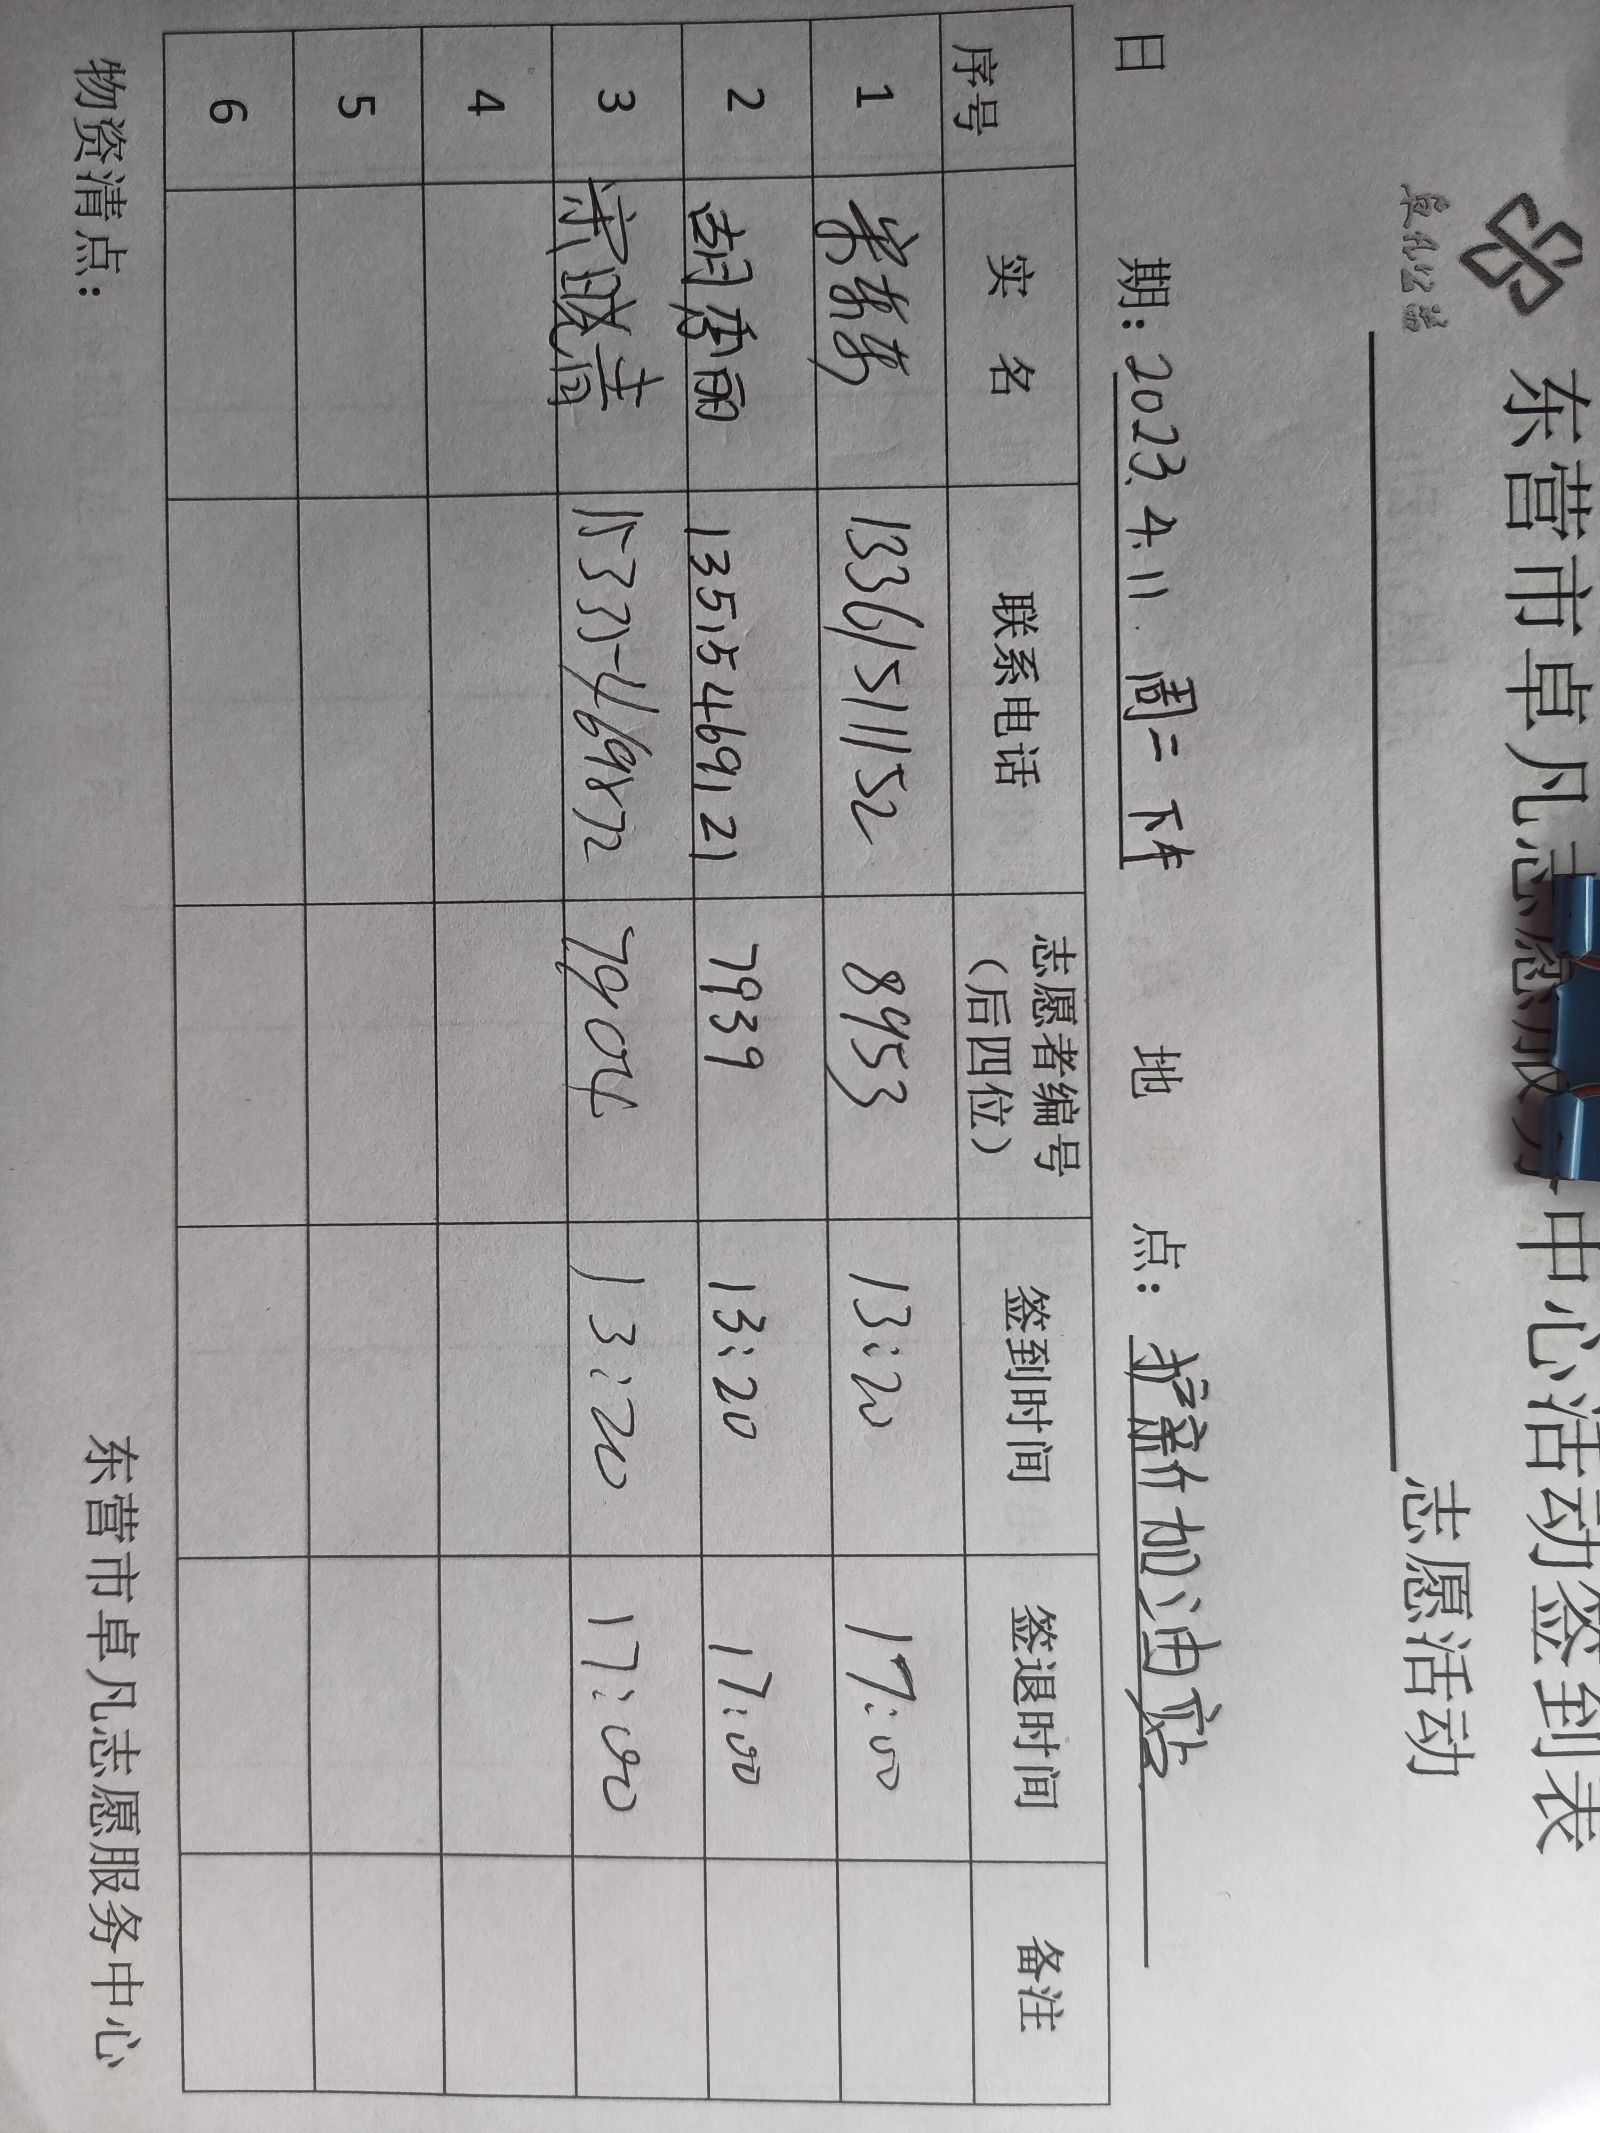 卓凡公益
东营市卓凡志愿服务中心活动签到表
志愿活动
日 期: 2023.4.11 周二 下午 地 点: 加油站
序号 实 名 联系电话 志愿者编号(后四位) 签到时间 签退时间 备注
1 13361511152 8953 13:20 17:00
2 胡秀丽 13515469121 7939 13:20 17:00
3 15335469872 7904 13:20 17:00
4
5
6
物资清点:
东营市卓凡志愿服务中心